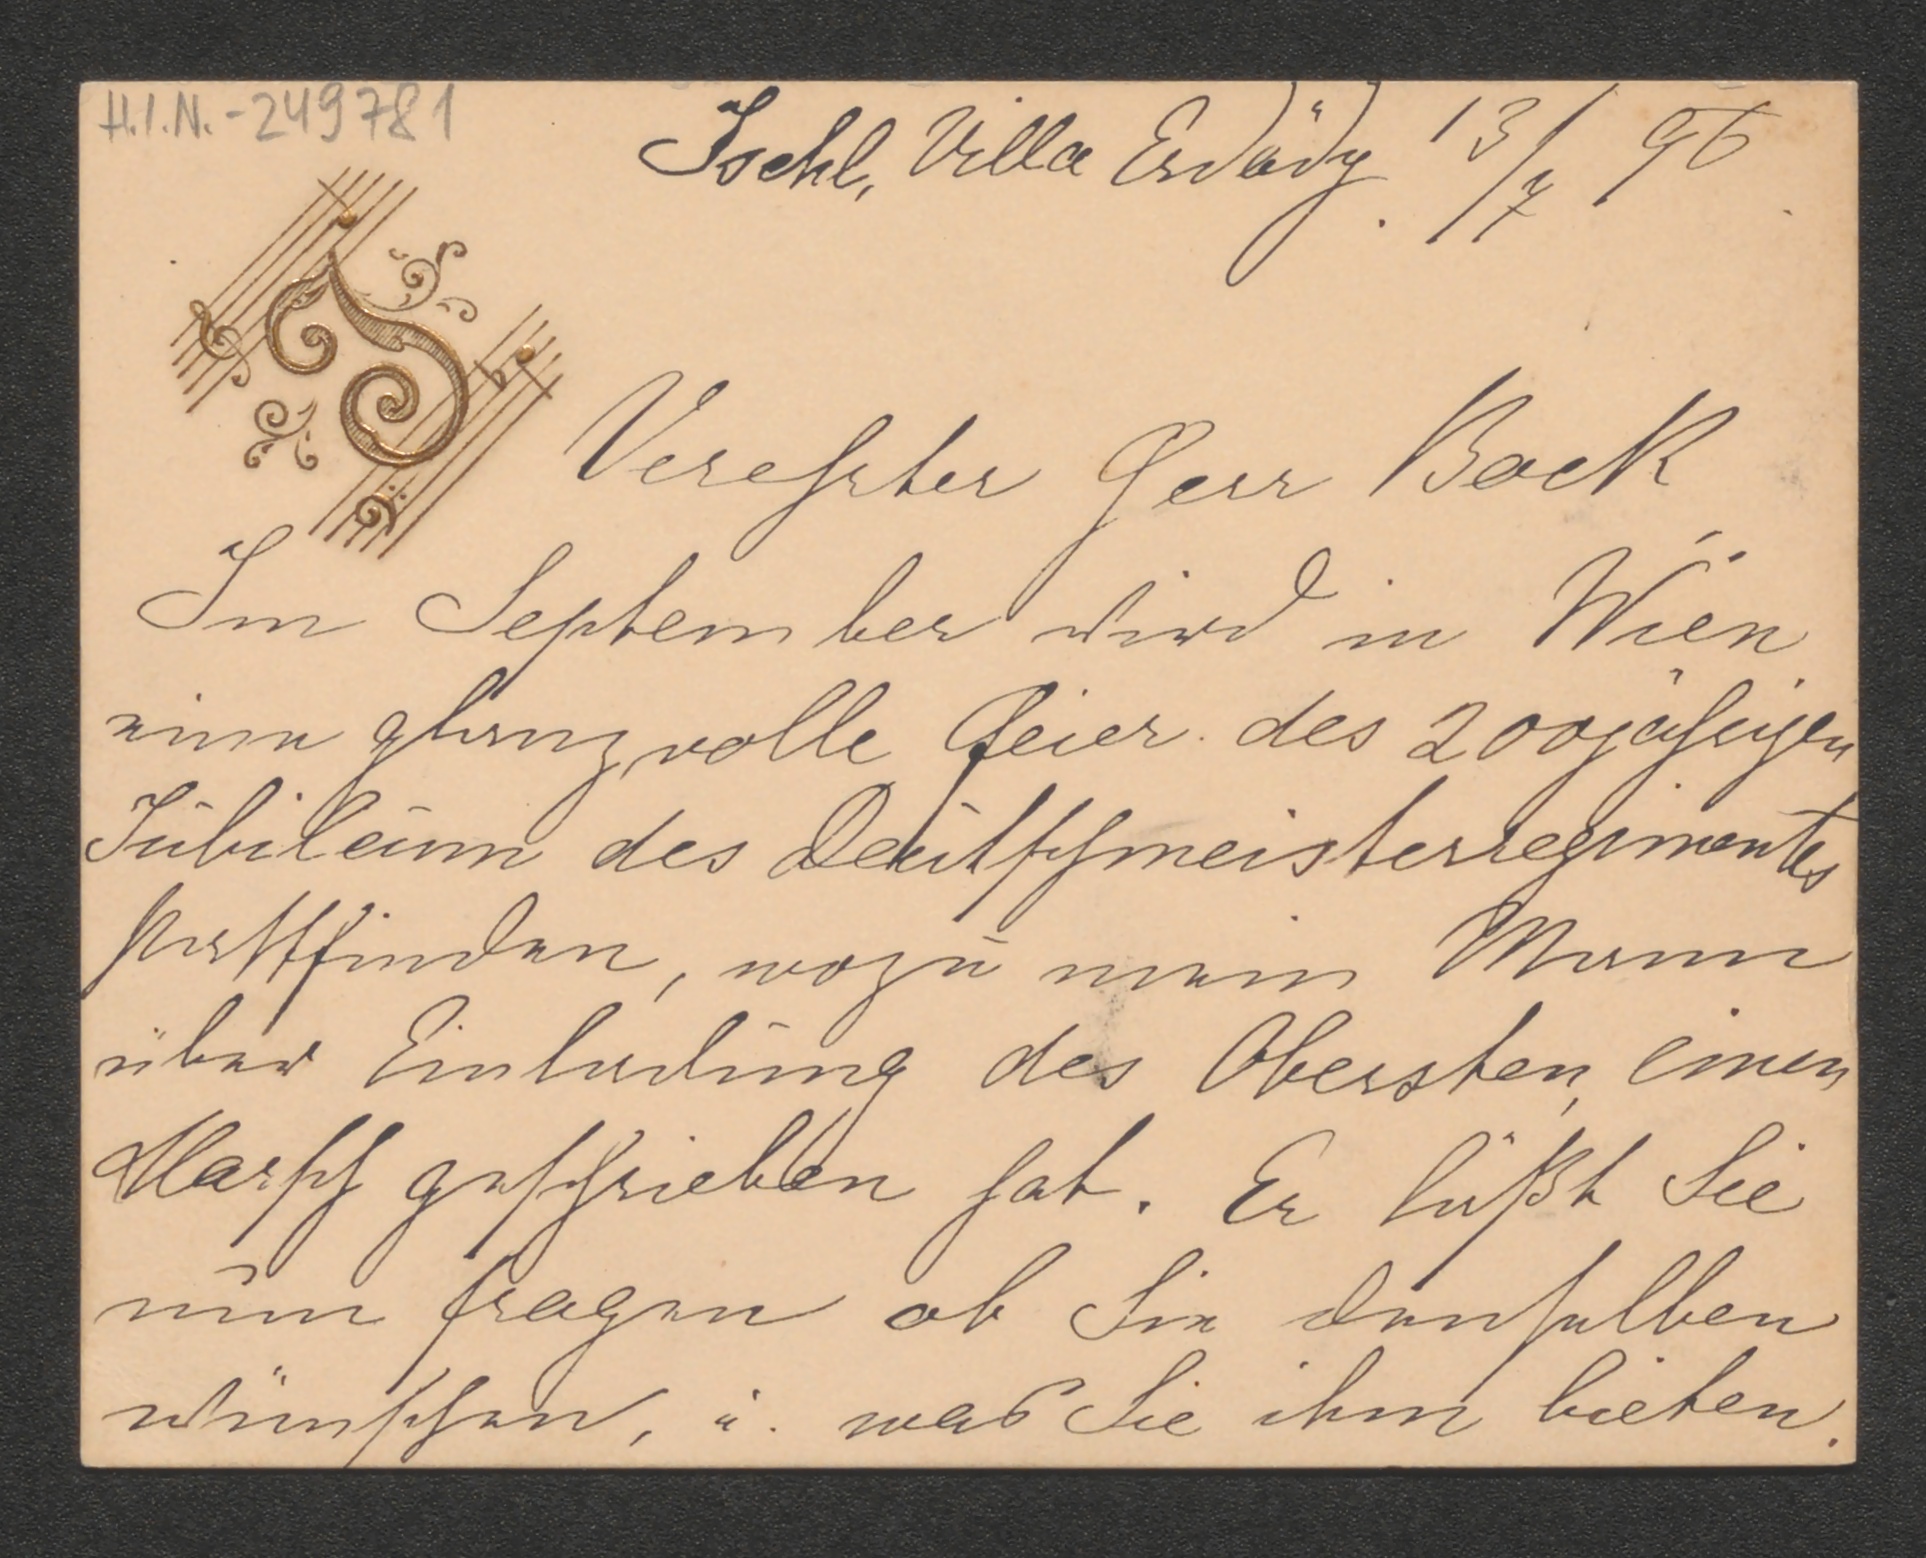 H.I.N.-249781
Ischl, Villa Erdödy. 13/7 96
Verehrter Herr Bock
Im September wird in Wien
eine glanzvolle Feier des 200jährigen
Jubiläum des Deutschmeisterregimentes
stattfinden, wozu mein Mann
über Einladung des Obersten, einen
Marsch geschrieben hat. Er läßt Sie
nun fragen ob Sie denselben
wünschen, u. was Sie ihm bieten.